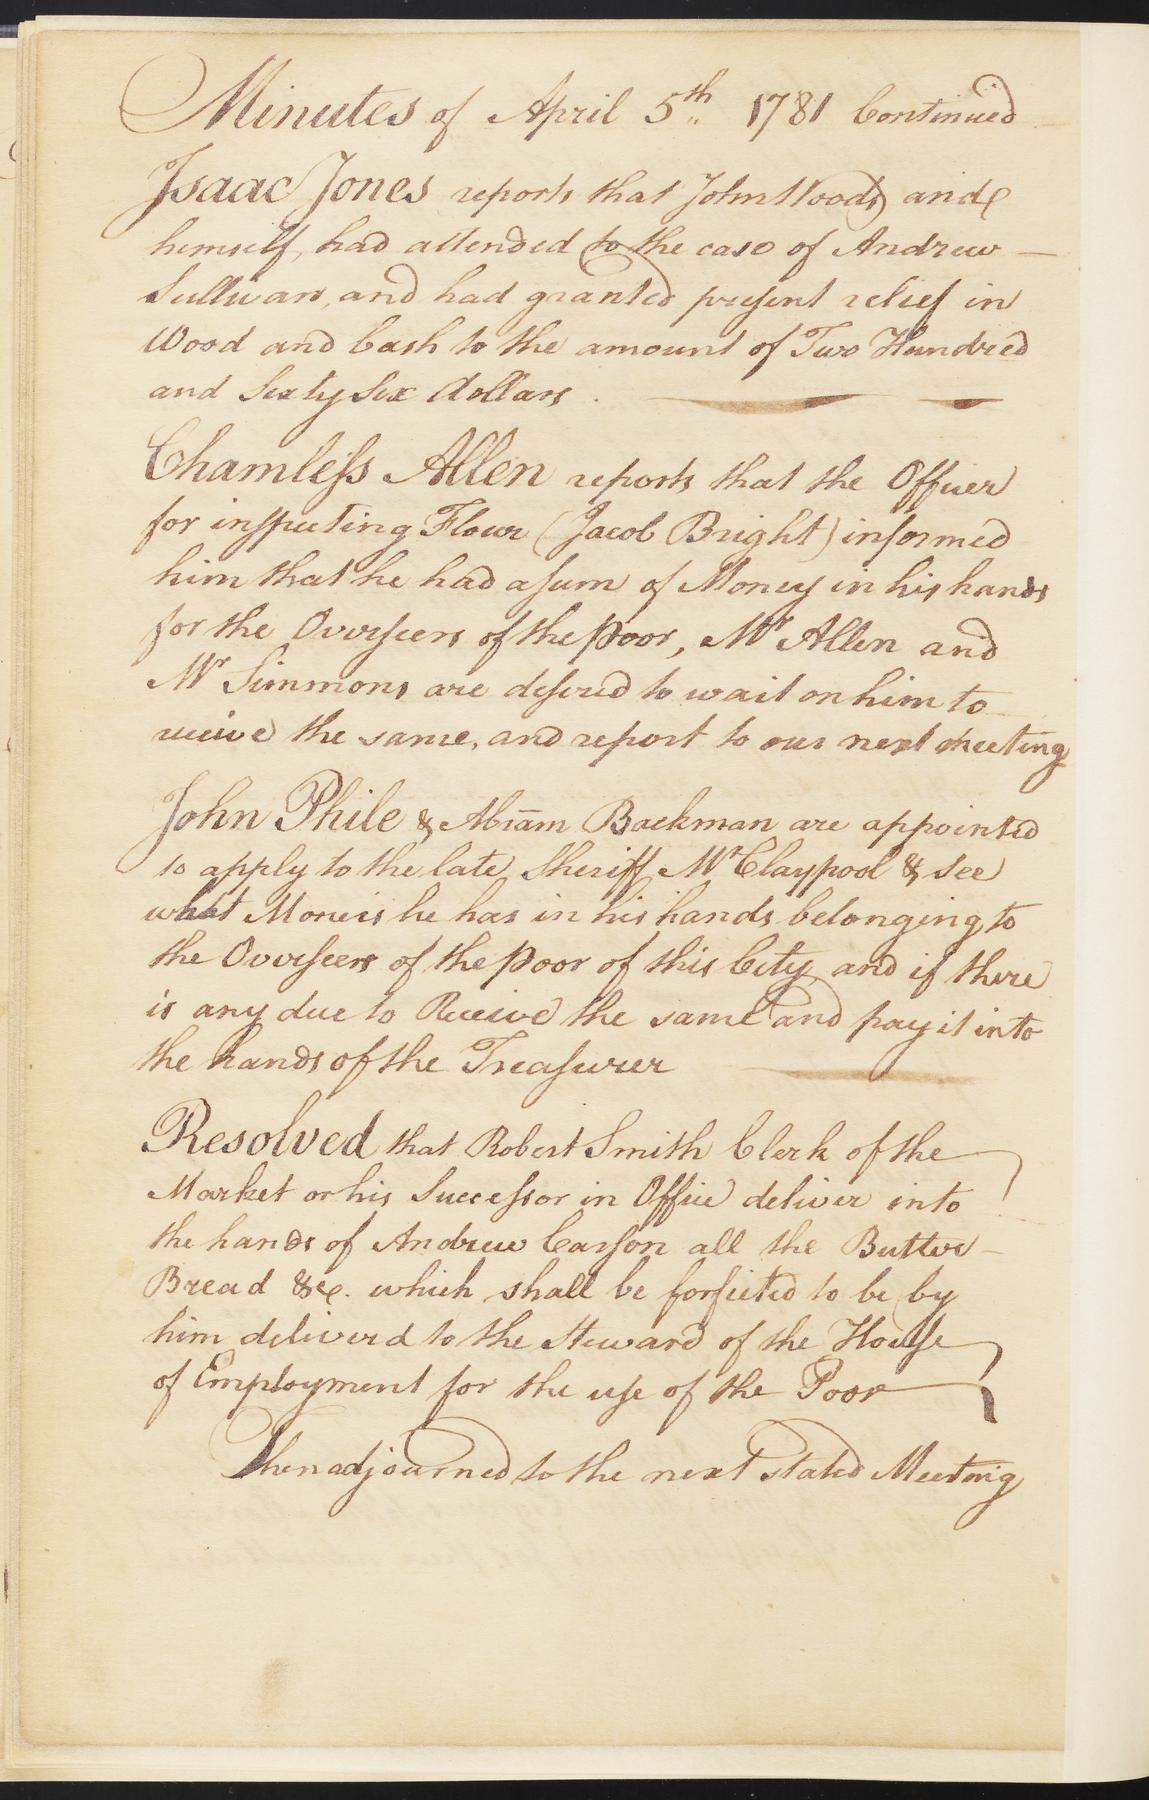 Minutes of April 5th 1781 Continued
Isaac Jones reports that John Woods and
himself, had attended to the case of Andrew —
Sullivan, and had granted present relief in
Wood and Cash to the amount of Two Hundred
and Sixty Six dollars.
Chamless Allen reports that the Officer
for inspecting Flour (Jacob Bright) informed
him that he had a sum of Money in his hands
for the Overseers of the poor, Mr Allen and
Mr Simmons are desired to wait on him to
receive the same, and report to our next meeting
John Phile & Abram Backman are appointed
to apply to the late Sheriff Mr Claypool & see
what Moneis he has in his hands belonging to
the Overseers of the poor of this City and if there
is any due to Receive the same and pay it into
the hands of the Treasurer
Resolved that Robert Smith Clerk of the
Market or his Successor in Office deliver into
the hands of Andrew Carson all the Butter —
Bread &c. which shall be forfieted to be by
him deliverd to the Steward of the House
of Employment for the use of the Poor
Then adjourned to the next stated Meeting